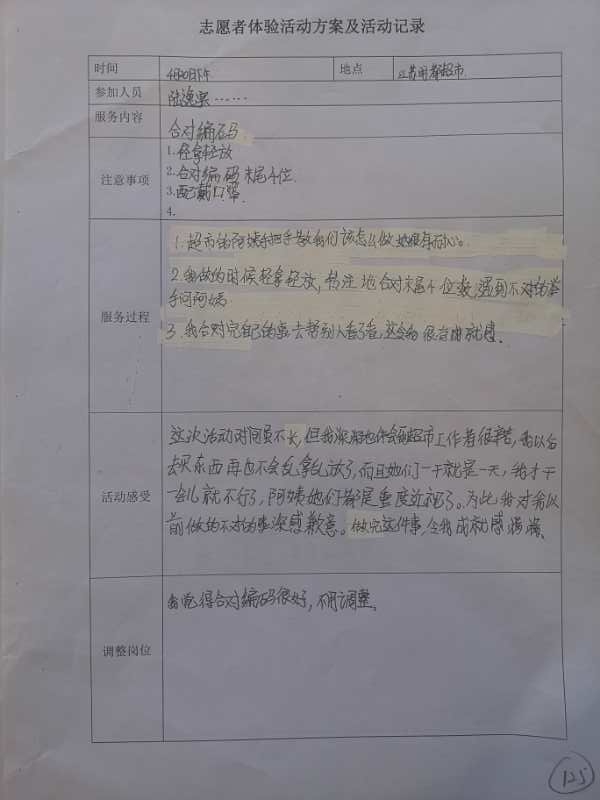 志愿者体验活动方案及活动记录
时间 4月30日下午 地点 超市
参加人员 陆逸
服务内容 合对编码
注意事项
1.轻拿轻放
2.合对编码末尾4位.
3.配戴口罩.
4.
服务过程
1.超市的阿姨手把手教我们该怎么做,她很有耐心。
2.我做的时候轻拿轻放,专注地合对末尾4位数,遇到不对的举
手问阿姨
3.我合对完自己的就去帮别人看了看,这令我很有成就感.
活动感受
这次活动时间虽不长,但我深深地体会到超市工作者很辛苦,我以后
去买东西再也不会乱拿乱放了,而且她们一干就是一天,我才干
一会儿就不行了,阿姨她们都是重度近视了。为此,我对我以
前做的不对的事深感歉意。做完这件事,令我成就感满满、
调整岗位
我觉得合对编码很好,不用调整。
125